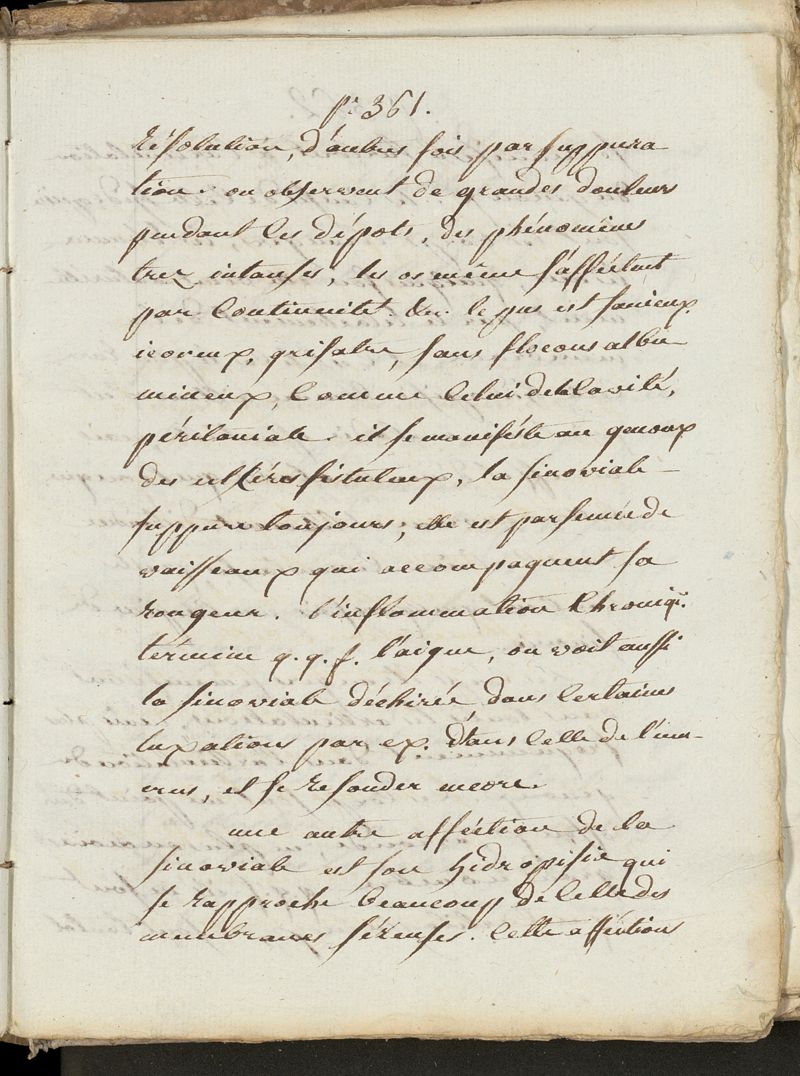 pe 361.
résolution, d'autres fois par suppura
tion. on observent de grandes douleurs
pendant les dépots, des phénomènes
trez intenses, les os même s'afféctent
par Continuité. &c. le pus est sanieux,
icoreux, grisatre, sans flocons albu
mineux, Comme Celui de la Cavité,
péritoniale. il se maniféste au genoux
des ulséres fistuleux, la sinoviale
suppure toujours, elle est parsemée de
vaisseaux qui accompagnent sa
rougeur. l'inflammation Chroniq.
términe q.q.f. l'aigue, on voit aussi
la sinoviale déchirée dans Certaines
luxations par ex. dans Celle de l'hu-
erus, et se resouder encore.
une autre afféction de la
sinoviale est son hidropisie qui
se rapproche beaucoup de Celle des
membranes séreuses. Cette afféctions